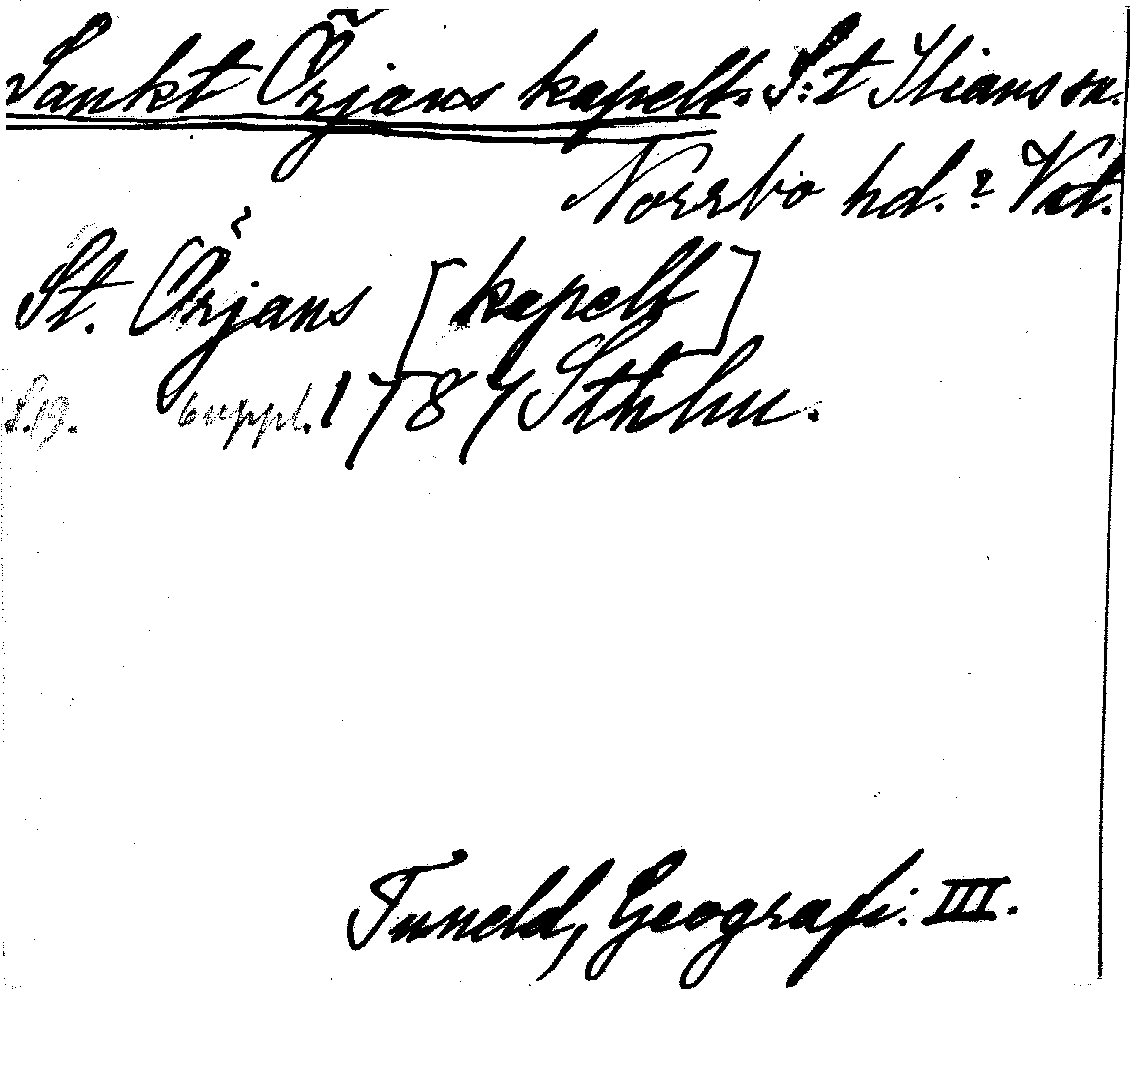 Sankt Örjans kapell. S:t Ilians sn.
Norrbo hd.? Vstl.
St. Örjans [kapell]
s.19. suppl. 1787 Sthlm.
Tuneld, Geografi: III.